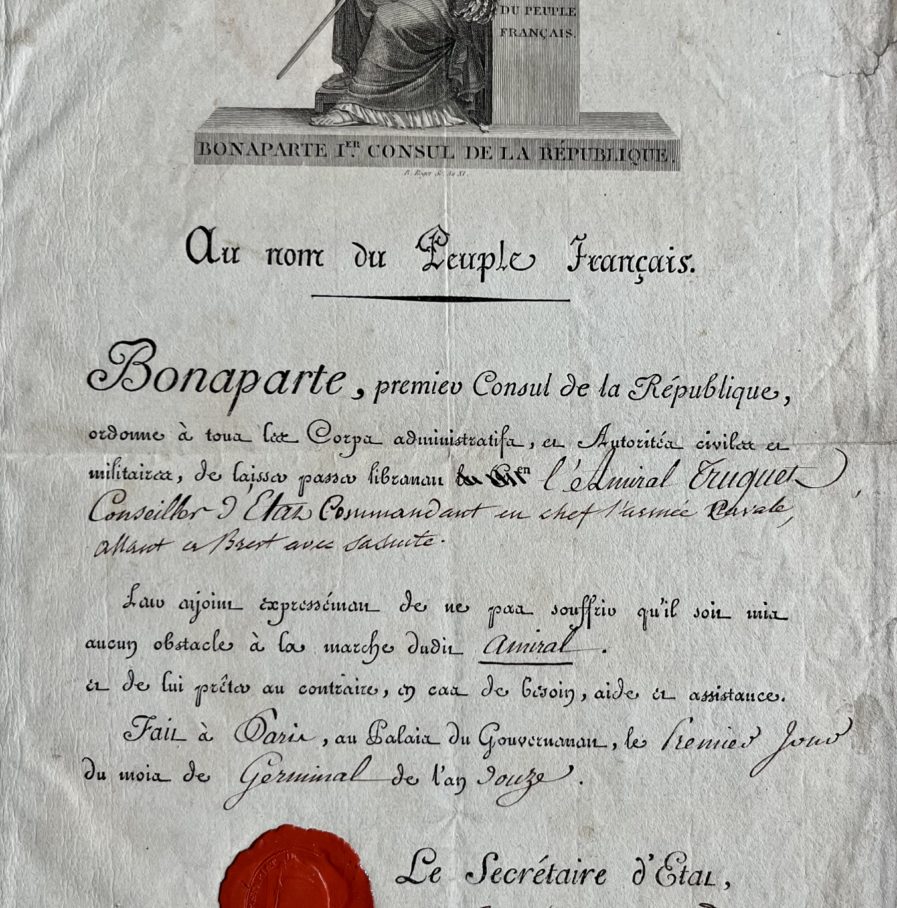 DU PEUPLE
FRANÇAIS.
BONAPARTE I.ER CONSUL DE LA RÉPUBLIQUE.
B. Roger Sc. An XI.
Au nom du Peuple Français.
Bonaparte, premier Consul de la République,
ordonne à tous les Corps administratifs, et Autorités civiles et
militaires, de laisser passer librement du Cit.en l'Amiral Truguet
Conseiller d'Etat Commandant en chef l'armée navale,
allant à Brest avec sa suite.
Leur enjoint expressément de ne pas souffrir qu'il soit mis
aucun obstacle à la marche dudit Amiral.
et de lui prêter au contraire, en cas de besoin, aide et assistance.
Fait à Paris, au Palais du Gouvernement, le Premier Jour
du mois de Germinal de l'an douze.
Le Secrétaire d'Etat,